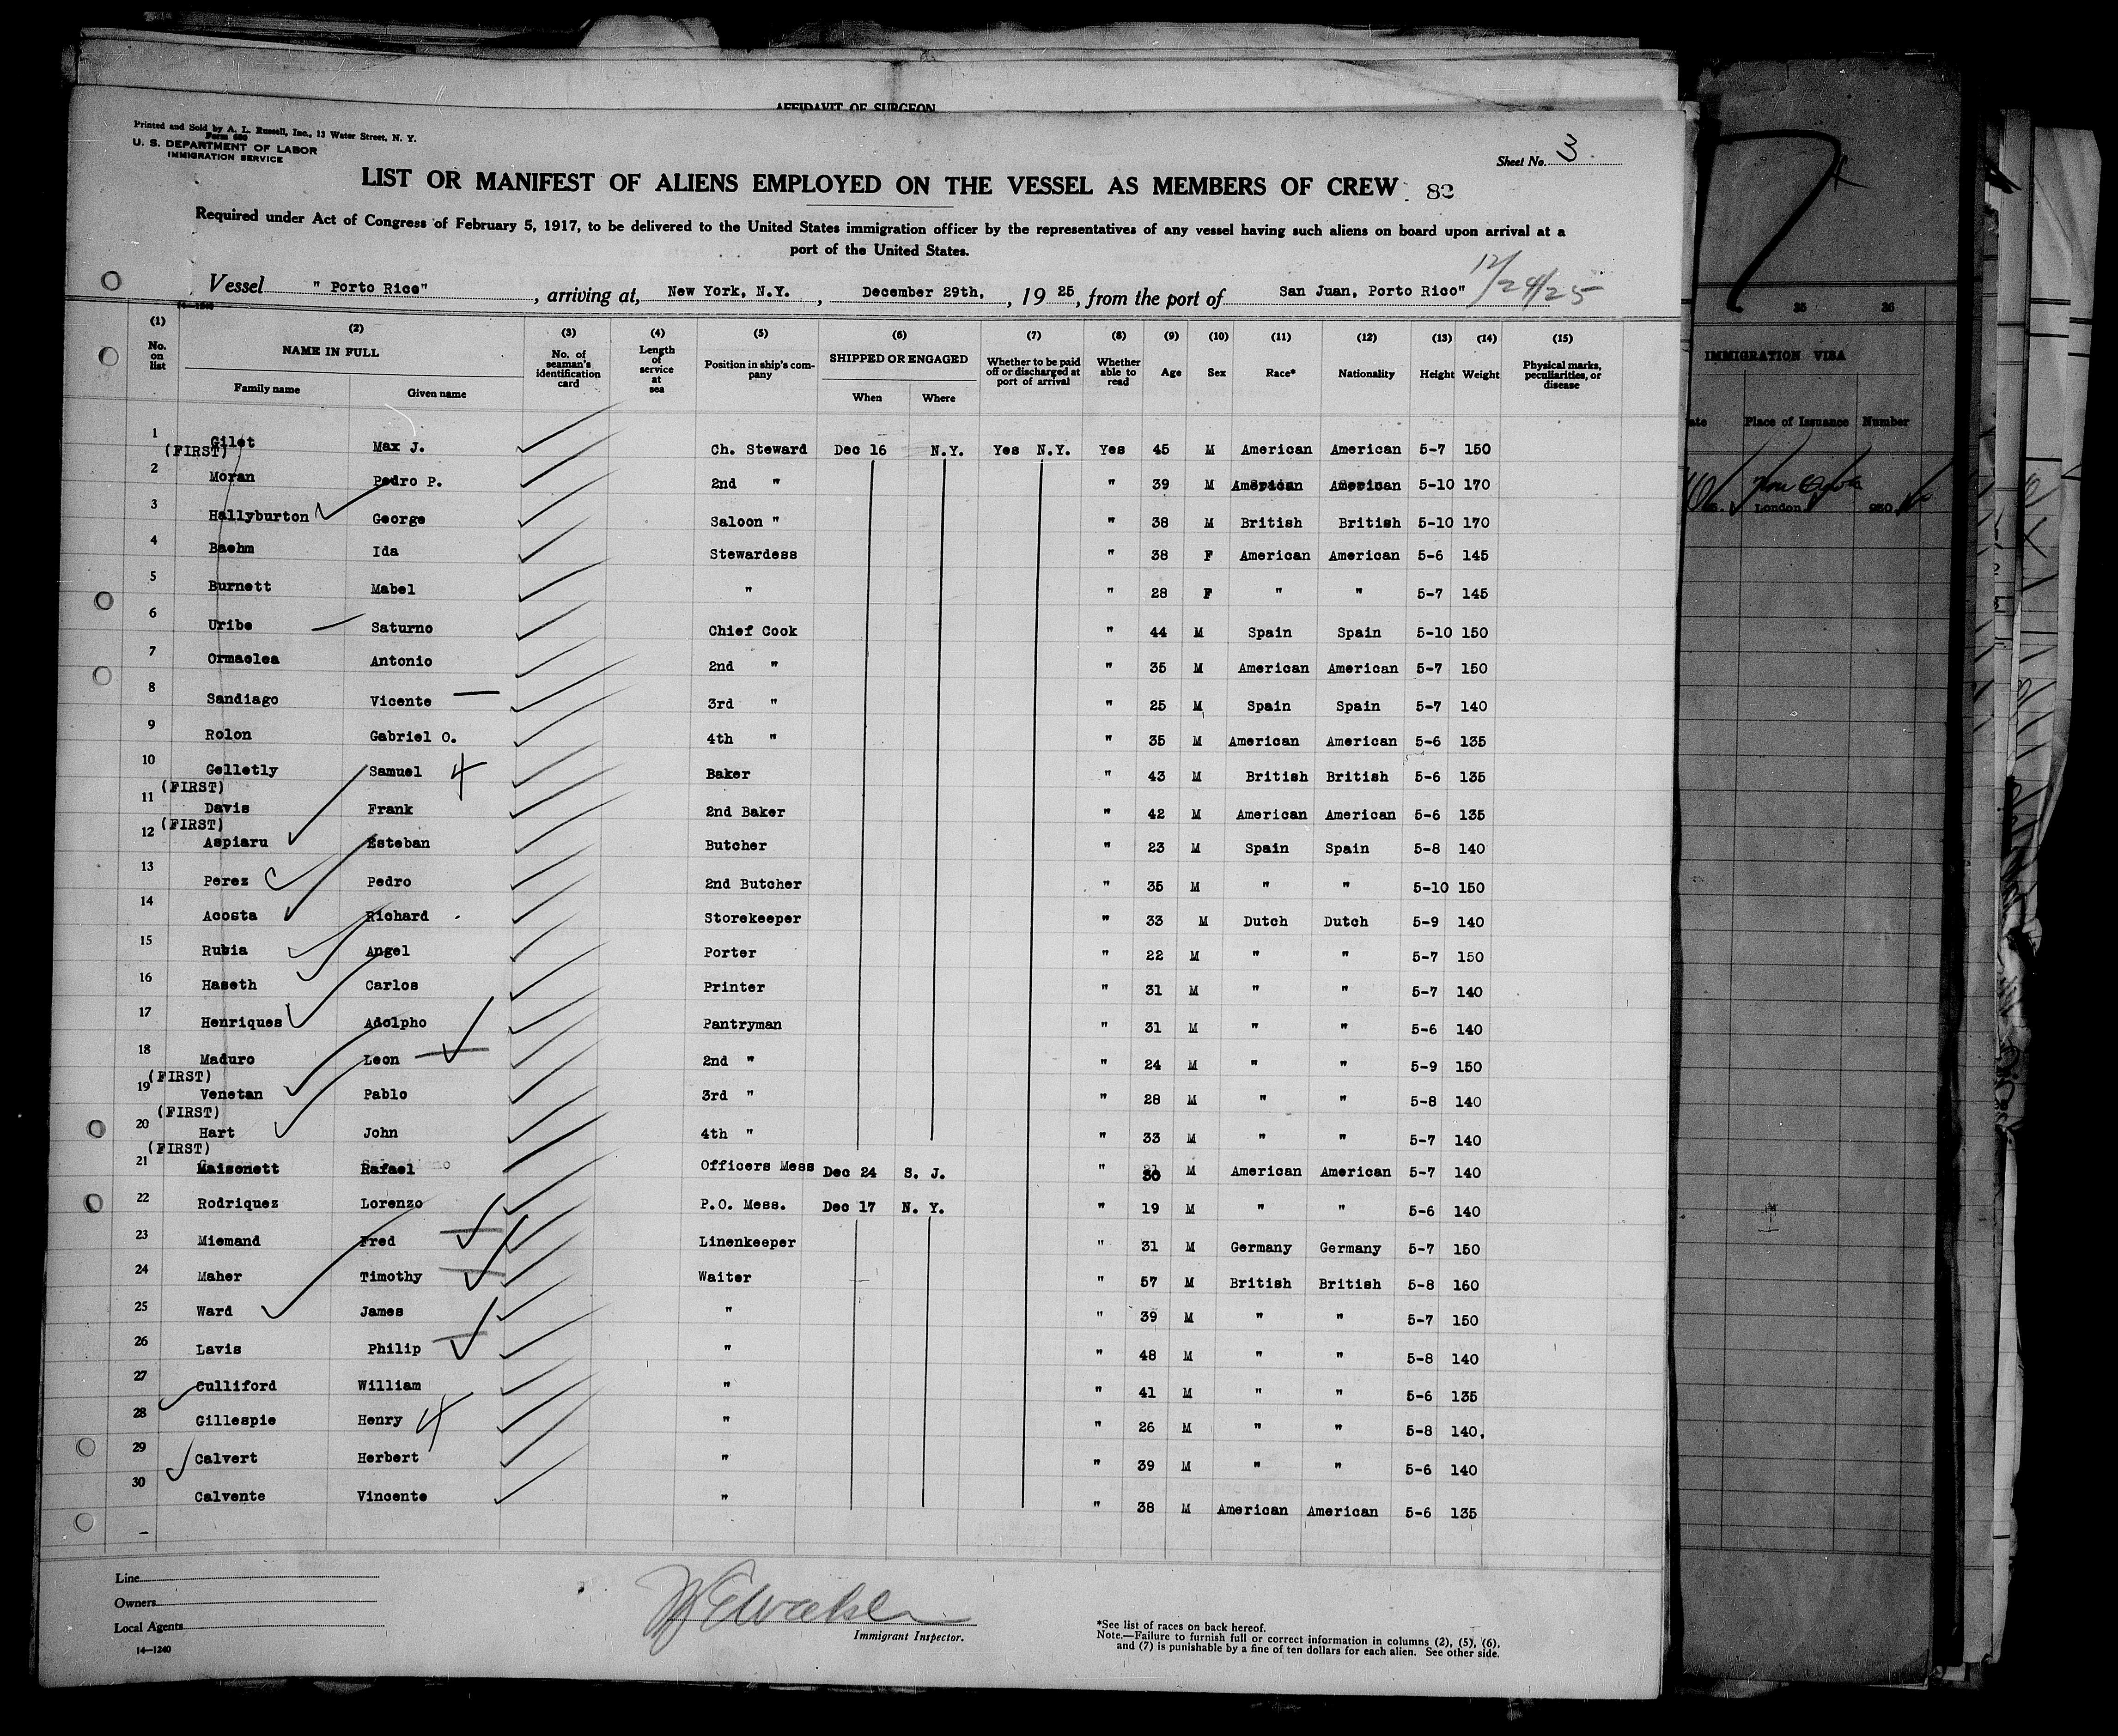 AFFIDAVIT OF SURGEON
Printed and Sold by A. L. Russell, Inc., 13 Water Street, N. Y.
Form 680
U. S. DEPARTMENT OF LABOR
IMMIGRATION SERVICE
Sheet No. 3
LIST OR MANIFEST OF ALIENS EMPLOYED ON THE VESSEL AS MEMBERS OF CREW 82
Required under Act of Congress of February 5, 1917, to be delivered to the United States immigration officer by the representatives of any vessel having such aliens on board upon arrival at a
port of the United States.
12/24/25
Vessel " Porto Rico" , arriving at, New York, N.Y. , December 29th, , 19 25, from the port of San Juan, Porto Rico"
14—1240
(1) (2) (3) (4) (5) (6) (7) (8) (9) (10) (11) (12) (13) (14) (15)
No. on list NAME IN FULL No. of seaman's identification card Length of service at sea Position in ship's company SHIPPED OR ENGAGED Whether to be paid off or discharged at port of arrival Whether able to read Age Sex Race* Nationality Height Weight Physical marks, peculiarities, or disease
Family name Given name When Where
1 Gilet Max J. Ch. Steward Dec 16 N.Y. Yes N.Y. Yes 45 M American American 5-7 150
(FIRST)
2 Moran Pedro P. 2nd " " 39 M American American 5-10 170
3 Hallyburton George Saloon " " 38 M British British 5-10 170
4 Baehm Ida Stewardess " 38 F American American 5-6 145
5 Burnett Mabel " " 28 F " " 5-7 145
6 Uribe Saturno Chief Cook " 44 M Spain Spain 5-10 150
7 Ormaelea Antonio 2nd " " 35 M American American 5-7 150
8 Sandiago Vicente 3rd " " 25 M Spain Spain 5-7 140
9 Rolon Gabriel O. 4th " " 35 M American American 5-6 135
10 Gelletly Samuel Baker " 43 M British British 5-6 135
(FIRST)
11 Davis Frank 2nd Baker " 42 M American American 5-6 135
(FIRST)
12 Aspiaru Esteban Butcher " 23 M Spain Spain 5-8 140
13 Perez Pedro 2nd Butcher " 35 M " " 5-10 150
14 Acosta Richard Storekeeper " 33 M Dutch Dutch 5-9 140
15 Rubia Angel Porter " 22 M " " 5-7 150
16 Haseth Carlos Printer " 31 M " " 5-7 140
17 Henriques Adolpho Pantryman " 31 M " " 5-6 140
18 Maduro Leon 2nd " " 24 M " " 5-9 150
(FIRST)
19 Venetan Pablo 3rd " " 28 M " " 5-8 140
(FIRST)
20 Hart John 4th " " 33 M " " 5-7 140
(FIRST)
21 Maisonett Rafael Officers Mess Dec 24 S. J. " 30 M American American 5-7 140
22 Rodriquez Lorenzo P.O. Mess. Dec 17 N. Y. " 19 M " " 5-6 140
23 Miemand Fred Linenkeeper " 31 M Germany Germany 5-7 150
24 Maher Timothy Waiter " 57 M British British 5-8 160
25 Ward James " " 39 M " " 5-7 150
26 Lavis Philip " " 48 M " " 5-8 140
27 Culliford William " " 41 M " " 5-6 135
28 Gillespie Henry " " 26 M " " 5-8 140.
29 Calvert Herbert " " 39 M " " 5-6 140
30 Calvente Vincente " " 38 M American American 5-6 135
Line
Owners
Local Agents
14—1240
Immigrant Inspector.
*See list of races on back hereof.
Note.—Failure to furnish full or correct information in columns (2), (5), (6),
and (7) is punishable by a fine of ten dollars for each alien. See other side.
35 36
IMMIGRATION VISA
Place of Issuance Number
London 950